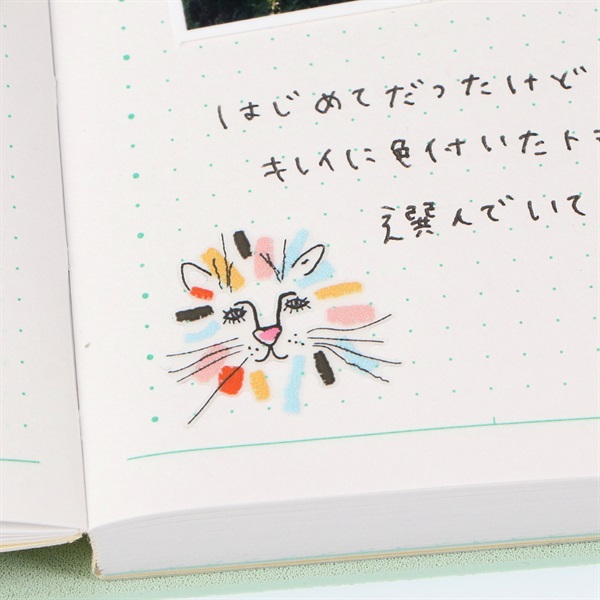 はじめてだったけど
キレイに色付いたトマ
選んでいて